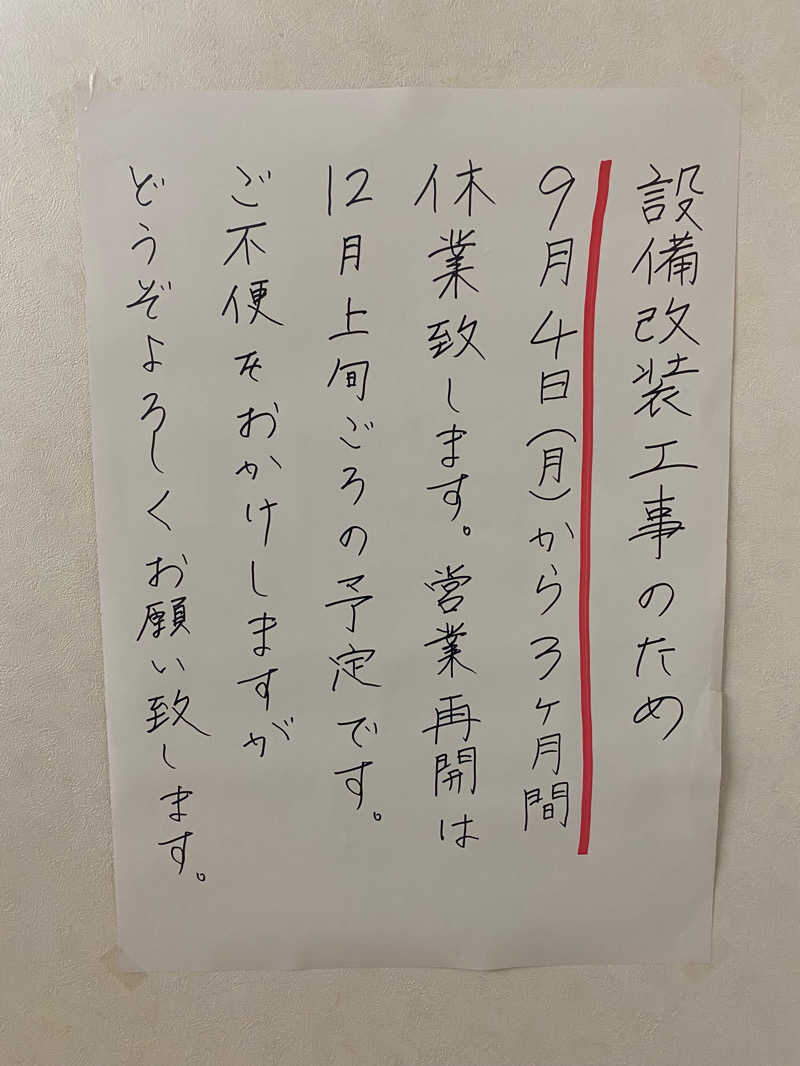 設備改装工事のため
9月4日(月)から3ヶ月間
休業致します。営業再開は
12月上旬ごろの予定です。
ご不便をおかけしますが
どうぞよろしくお願い致します。